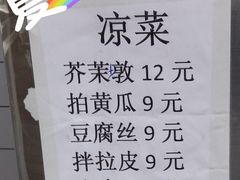 凉菜
芥茉敦 12 元
拍黄瓜 9 元
豆腐丝 9 元
拌拉皮 9 元